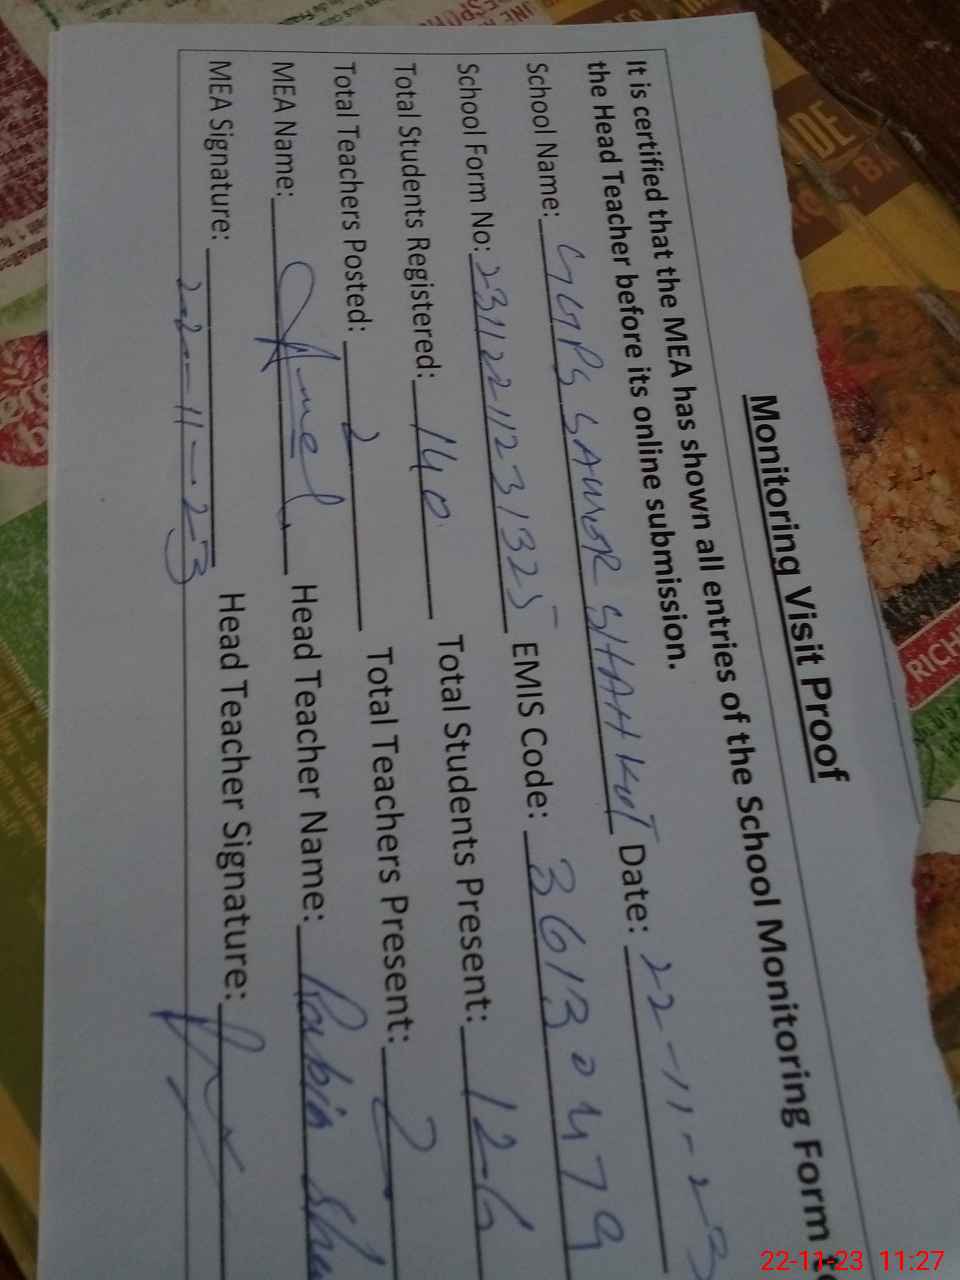 Monitoring Visit Proof
It is certified that the MEA has shown all entries of the School Monitoring Form
the Head Teacher before its online submission.
School Name: GGPS SAWAR SHAH KOT Date: 22-11-23
School Form No: 231122112313325 EMIS Code: 36130479
Total Students Registered: 140 Total Students Present: 126
Total Teachers Posted: 2 Total Teachers Present: 2
MEA Name: Head Teacher Name: Rabia
MEA Signature: Head Teacher Signature:
22-11-23
RICH
22-11-23 11:27